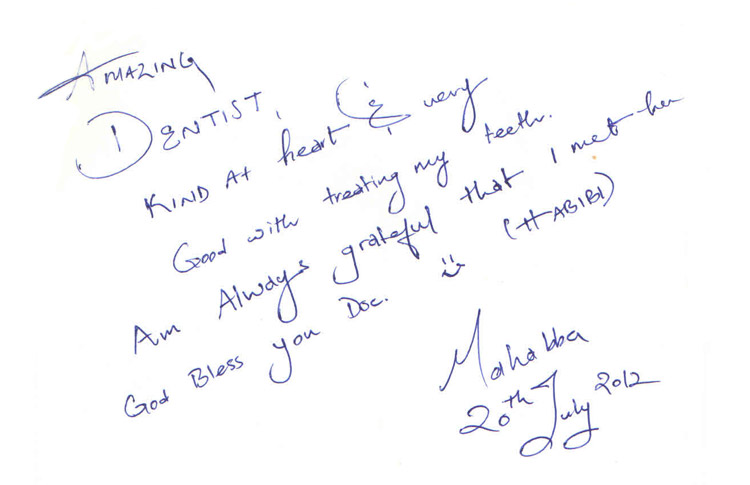 AMAZING
DENTIST,
KIND At heart & very
Good with treating my teeth.
Am Always grateful that I met her
God Bless you Doc. :) (HABIBI)
Mahabba
20th July 2012